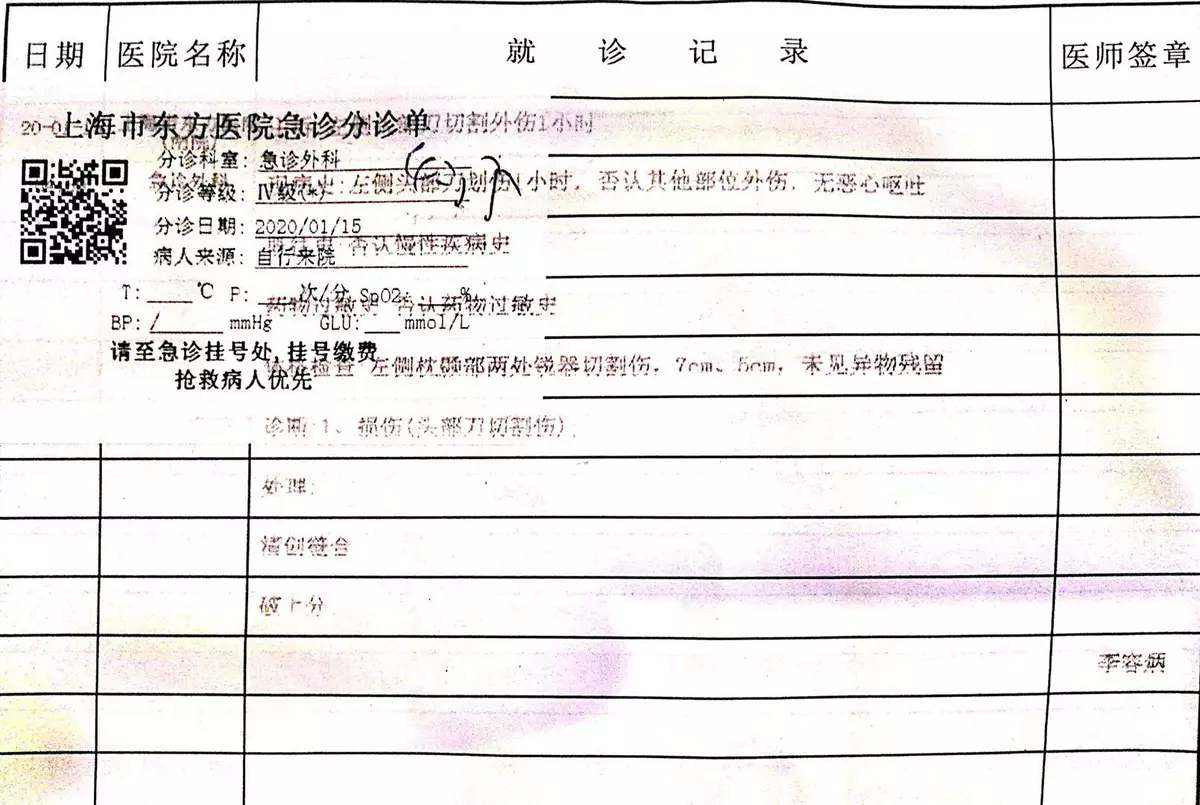 日期 医院名称 就诊记录 医师签章
上海市东方医院急诊分诊单
刀切割外伤1小时
分诊科室：急诊外科
急诊外科
左侧头部刀划伤1小时，否认其他部位外伤，无恶心呕吐
分诊等级：Ⅳ级(*)
分诊日期：2020/01/15
否认慢性疾病史
病人来源：自行来院
T:____℃ P:____次/分 SpO2:____%
药物过敏史 否认药物过敏史
BP:/______mmHg GLU:___mmol/L
请至急诊挂号处,挂号缴费
体格检查 左侧枕颞部两处锐器切割伤，7cm、5cm，未见异物残留
抢救病人优先
诊断 1、损伤(头部刀切割伤)
处理:
清创缝合
破上分
李容炳